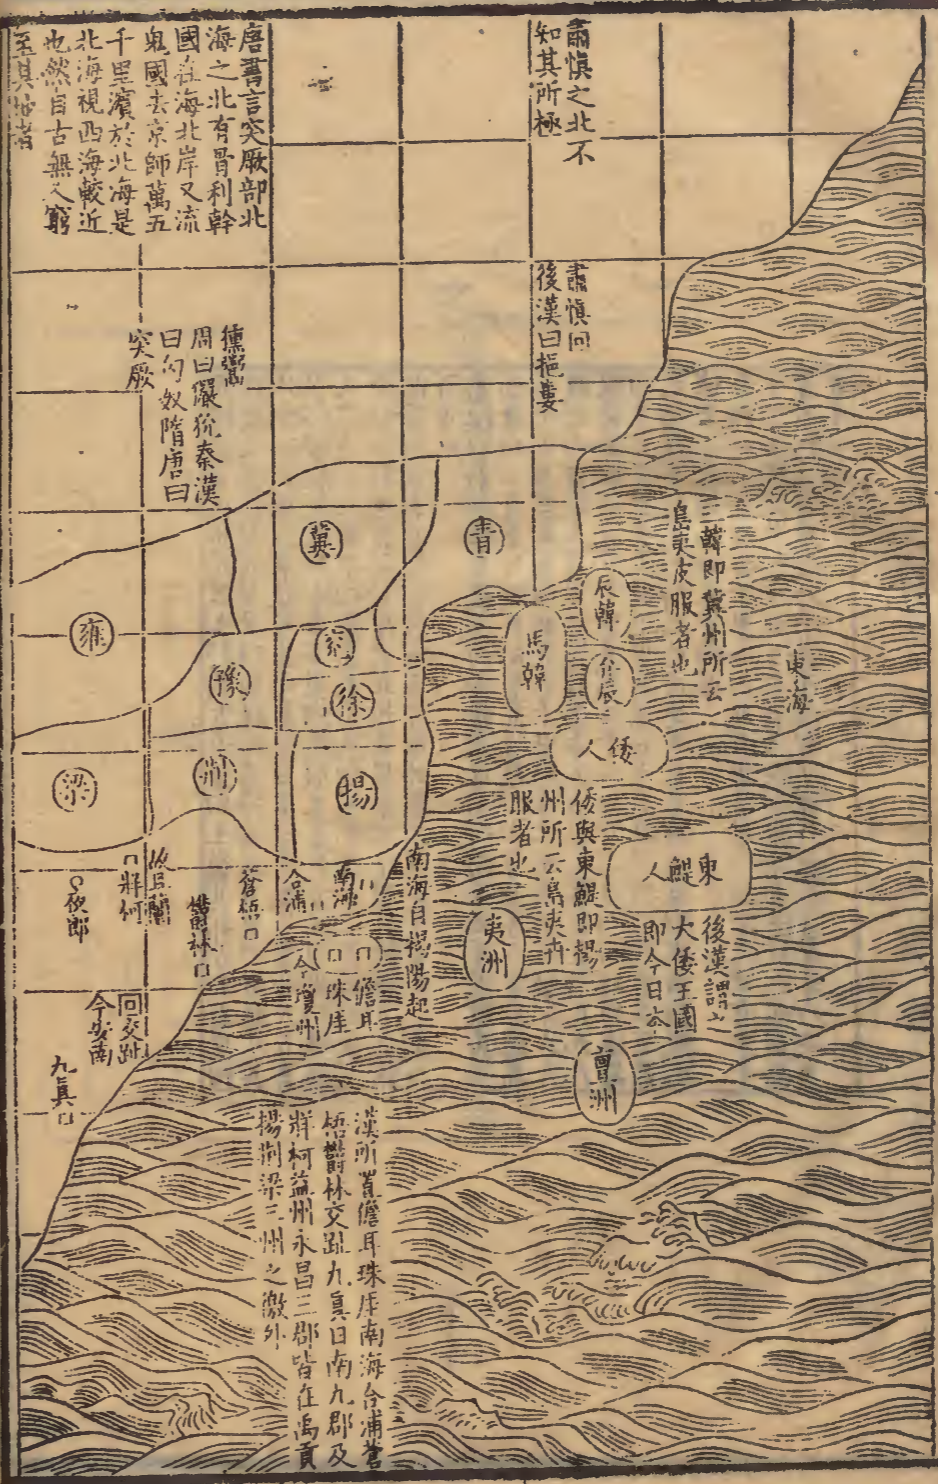 肅慎之北不
知其所極
唐書言突厥部北
海之北有骨利幹
國在海北岸又流
鬼國去京師萬五
千里濱於北海是
北海視西海較近
也然自古無人窮
至其地者
肅慎回
後漢曰挹婁
獯鬻
周曰玁狁秦漢
曰匈奴隋唐曰
突厥
三韓即冀州所云
島夷皮服者也
東海
青
冀
雍
辰韓
馬韓
弁辰
兖
徐
豫
倭人
揚
荊
梁
倭與東鯷即揚
州所云島夷卉
服者也
東鯷人
後漢謂之
大倭王國
即今日本
夷洲
亶洲
南海自揭陽起
南海
合浦
蒼梧
鬱林
故且蘭
牂柯
夜郎
儋耳
珠厓
今瓊州
交趾
今安南
九真
漢所置儋耳珠厓南海合浦蒼
梧鬱林交趾九真日南九郡及
牂柯益州永昌三郡皆在禹貢
揚荊梁三州之徼外